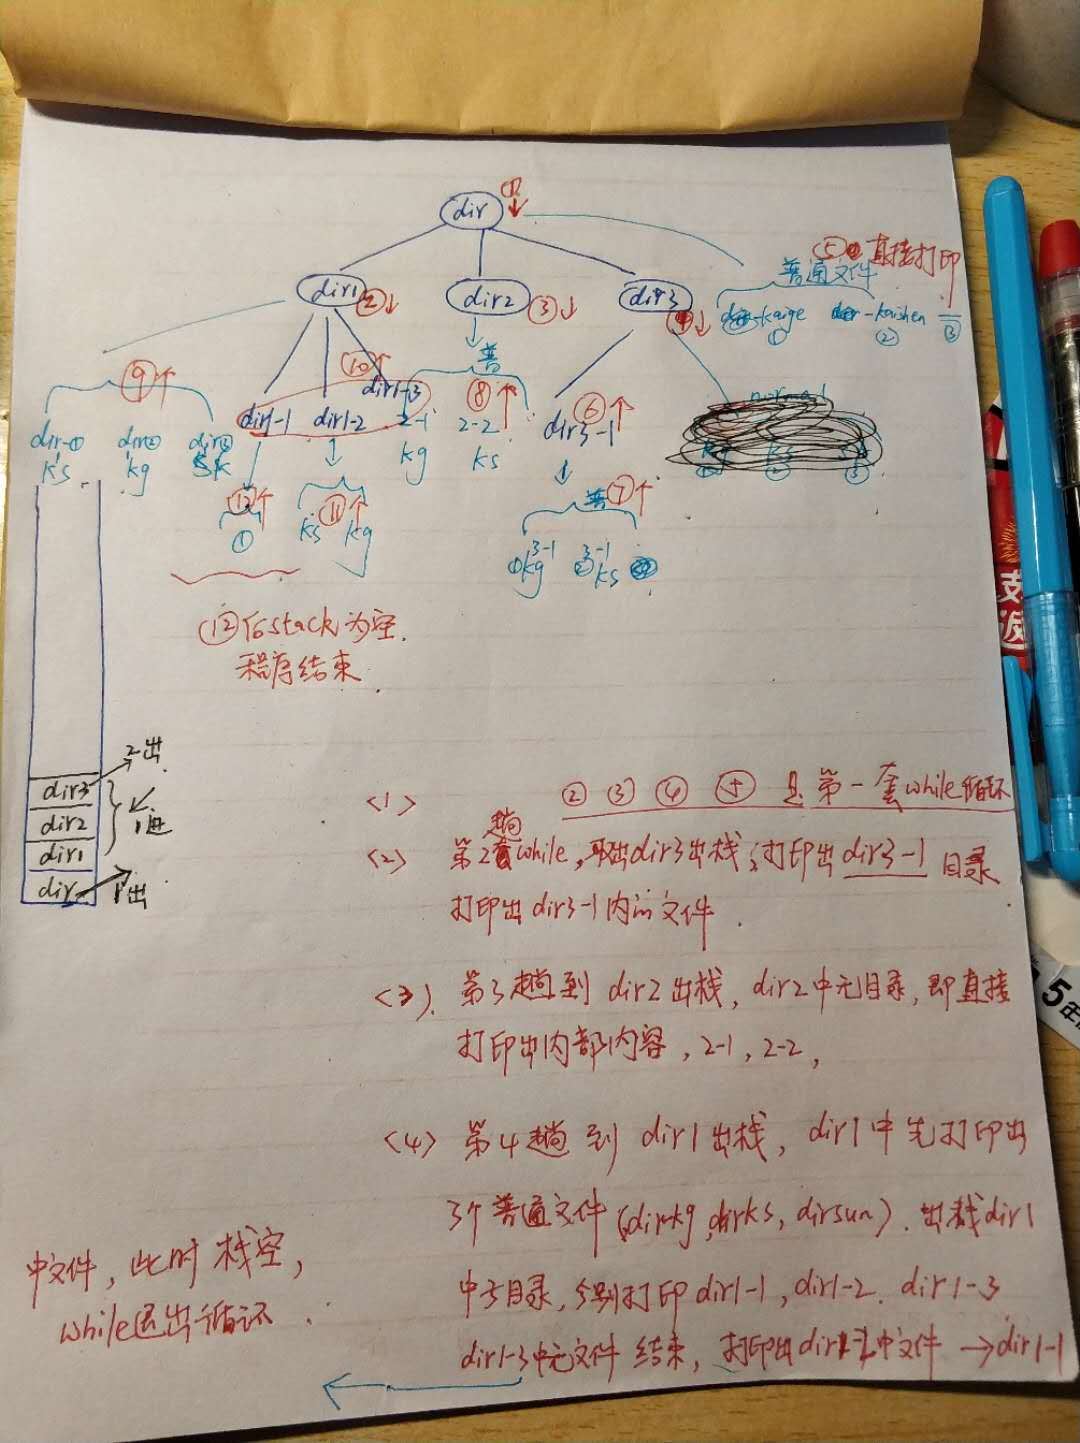 dir ① ↓
⑤ 直接打印
普通文件
dir1 ② ↓
dir2 ③ ↓
dir3 ④ ↓
-kaige ①
-kaishen ②
③
普
⑨ ↑
⑩ ↑
⑧ ↑
⑥ ↑
dir1-1
dir1-2
dir1-3
2-1
kg
2-2
ks
dir3-1
dir①
ks
dir②
kg
dir③
⑫ ↑
①
⑪ ↑
ks
kg
普 ⑦ ↑
① 3-1
kg
② 3-1
ks
⑫后stack为空.
程序结束
2出
dir3
dir2
dir1
dir
1进
1出
<1> ② ③ ④ ⑤ 是第一套while循环
<2> 第2趟while,取出dir3出栈;打印出dir3-1目录
打印出dir3-1内的文件.
<3>. 第3趟到dir2出栈,dir2中无目录,即直接
打印出内部内容,2-1,2-2,
<4> 第4趟到dir1出栈,dir1中先打印出
3个普通文件(dirkg,dirks,dirsun).出栈dir1
中子目录,分别打印dir1-1,dir1-2.dir1-3
dir1-3中无文件结束,打印出dir1-2中文件→dir1-1
中文件,此时栈空,
while退出循环.
5年